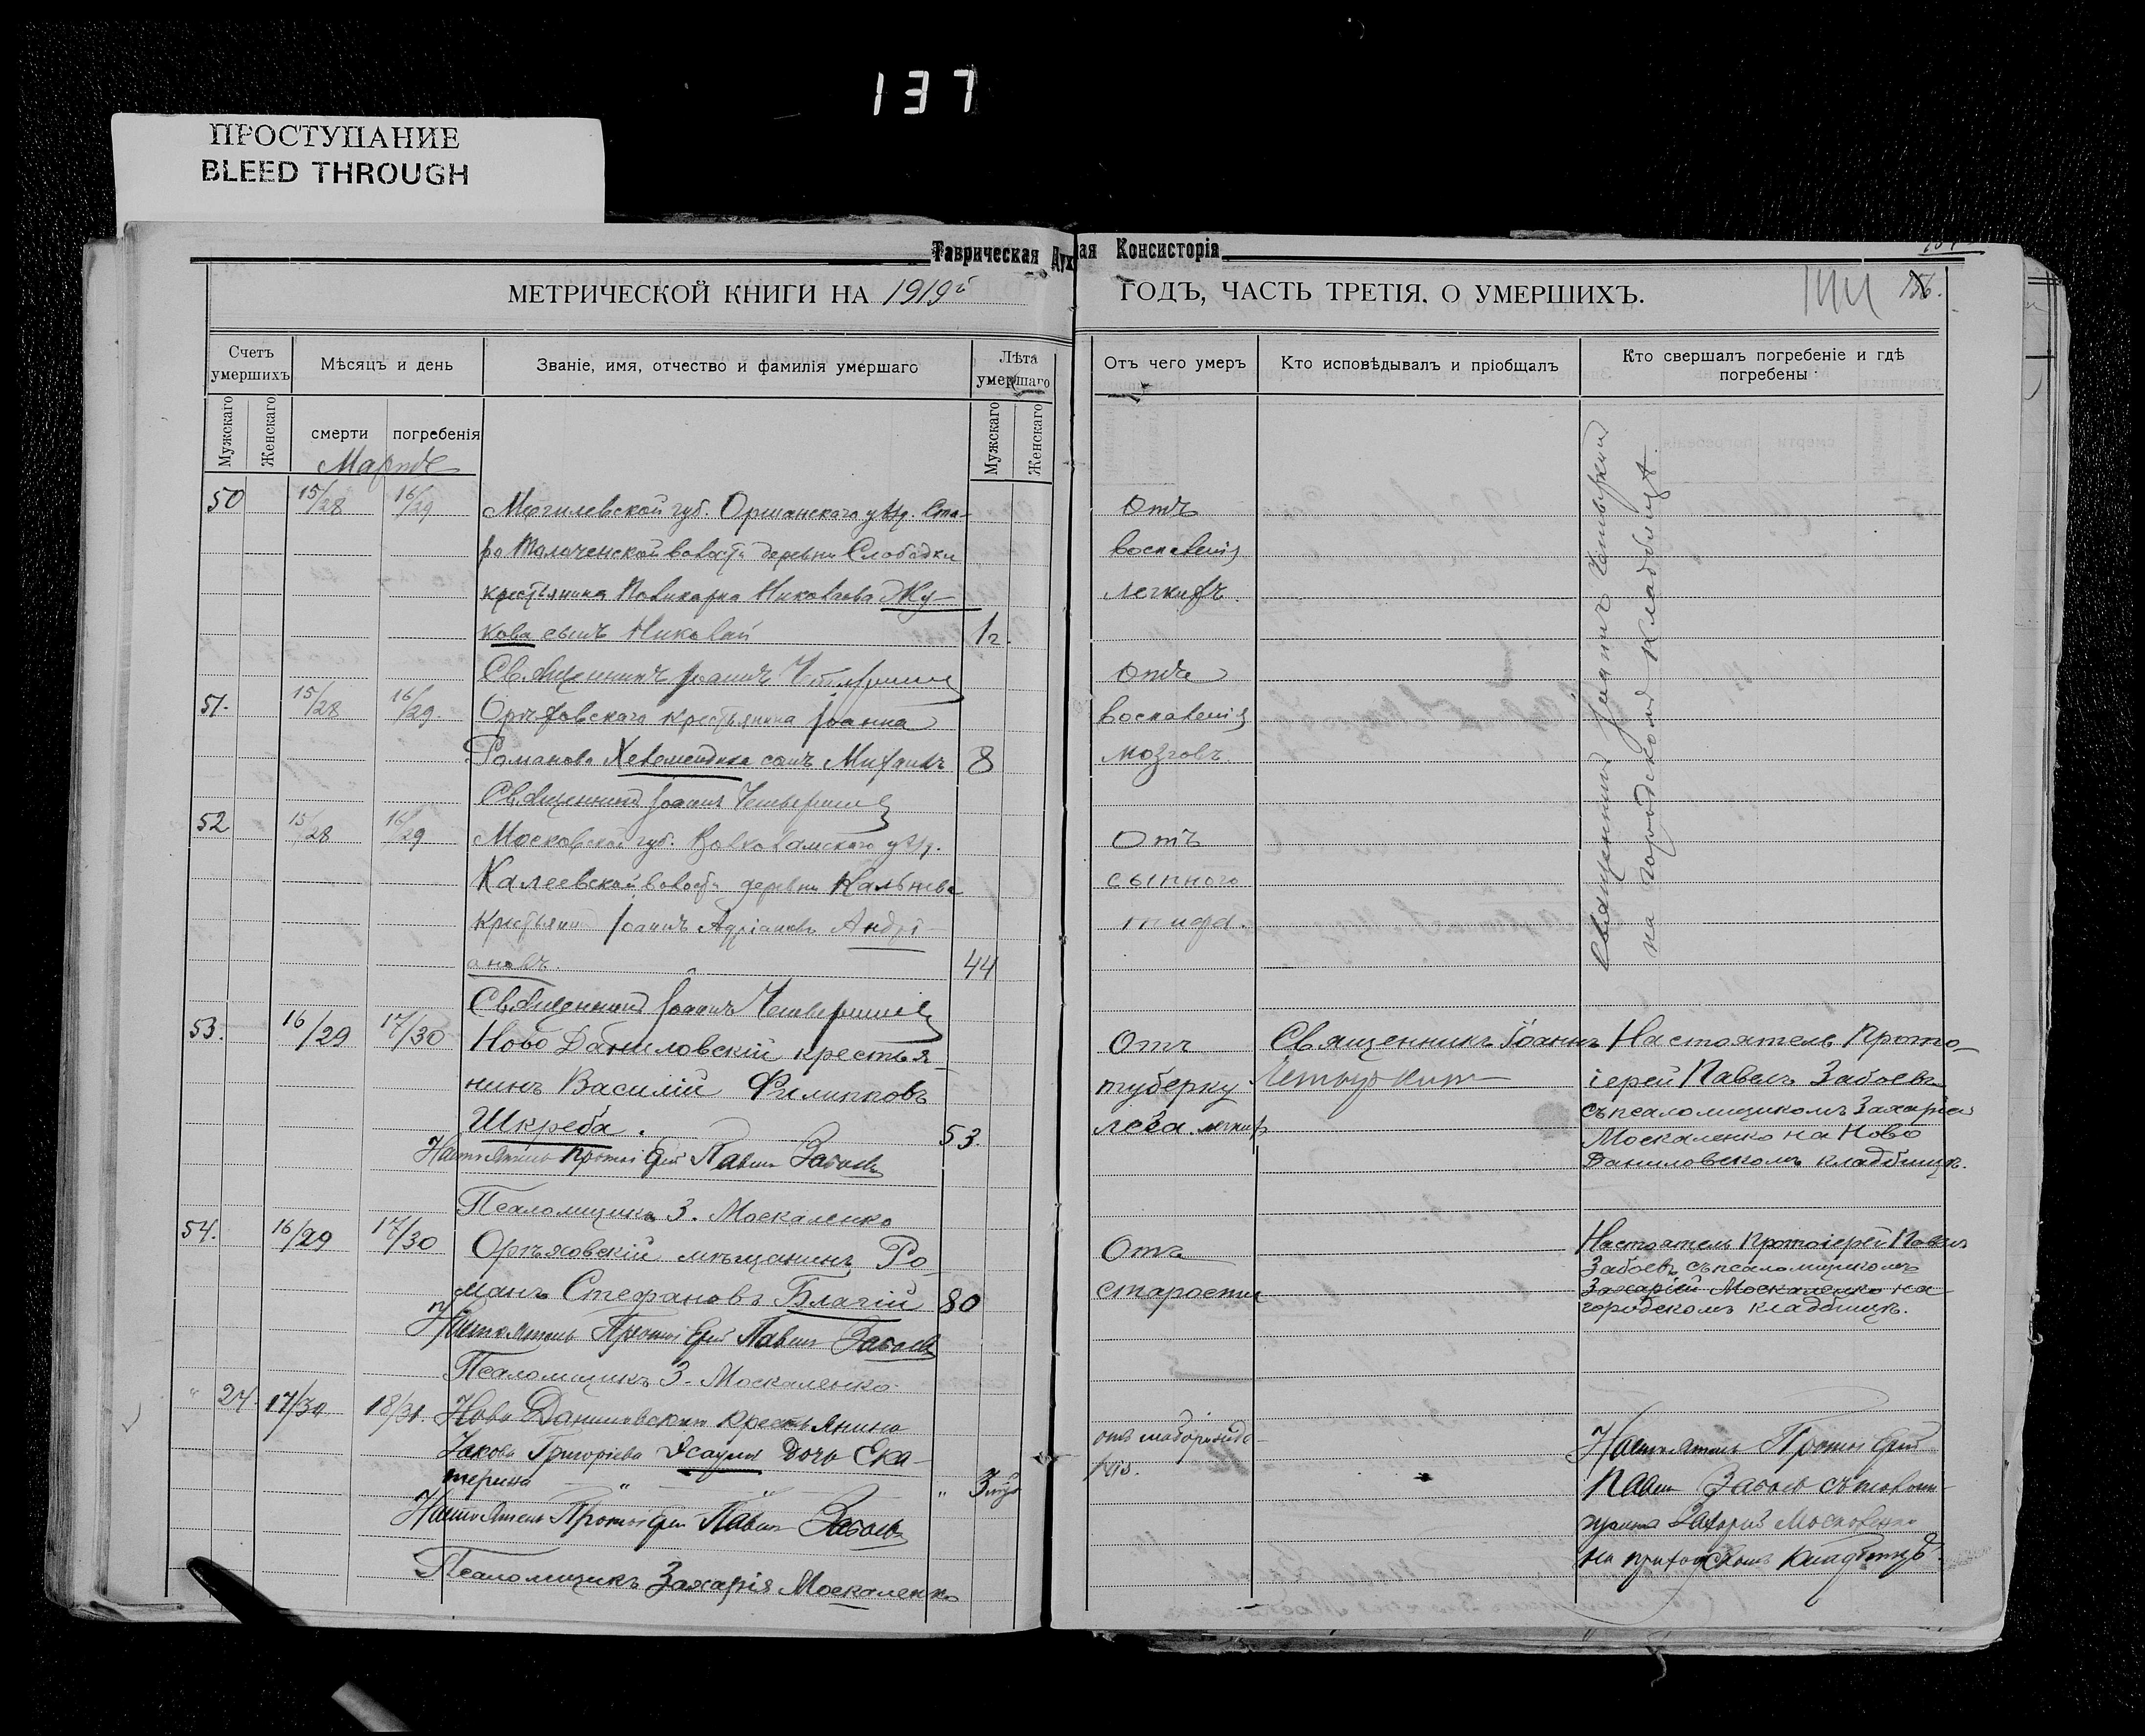 137
ПРОСТУПАНИЕ
BLEED THROUGH
Таврическая Дух
ая Консисторія
МЕТРИЧЕСКОЙ КНИГИ НА 1919й
ГОДЪ, ЧАСТЬ ТРЕТІЯ, О УМЕРШИХЪ.
156.
Счетъ умершихъ
Мѣсяцъ и день
Званіе, имя, отчество и фамилія умершаго
Лѣта умершаго
Мужскаго
Женскаго
смерти
погребенія
Мужскаго
Женскаго
Отъ чего умеръ
Кто исповѣдывалъ и пріобщалъ
Кто свершалъ погребеніе и гдѣ погребены
Мартъ
50 15/28 16/29 Могилевской губ. Оршанскаго уѣзд. Ста-
ро Толоченской волости деревни Слободки
крестьянина Поликарпа Николаева Жу-
кова сынъ Николай 1г.
Священникъ Іоаннъ
Отъ
воспаленія
легкихъ.
51. 15/28 16/29. Орѣховскаго крестьянина Іоанна
Романова сынъ Михаилъ 8
Священникъ Іоаннъ
Отъ
воспаленія
мозговъ.
52 15/28 16/29 Московской губ. Волколамскаго уѣзд.
Калеевской волости деревни
крестьянинъ Іоаннъ Адріановъ Андрі-
ановъ. 44
Священникъ Іоаннъ
Отъ
сыпного
тифа.
Священникъ Іоаннъ
на городскомъ кладбищѣ.
53. 16/29 17/30 Ново Даниловскій крестья-
нинъ Василій Филипповъ
Шкреба. 53.
Настоятель Протоіерей Павелъ Забоевъ
Псаломщикъ З. Москаленко
Отъ
туберку-
леза легкихъ
Священникъ Іоаннъ
Настоятель Прото-
іерей Павелъ Забоевъ
съ псаломщикомъ Захаріей
Москаленко на Ново
Даниловскомъ кладбищѣ.
54. 16/29 17/30 Орѣховскій мѣщанинъ Ро-
манъ Стефановъ Благій 80
Настоятель Протоіерей Павелъ Забоевъ
Псаломщикъ З. Москаленко
Отъ
старости
Настоятель Протоіерей Павелъ
Забоевъ съ псаломщикомъ
Захаріей Москаленко на
городскомъ кладбищѣ.
" 24. 17/30 18/31. Ново Даниловскаго крестьянина
Іакова Григоріева Ясаула дочь Ека-
терина " " " 3
Настоятель Протоіерей Павелъ Забоевъ
Псаломщикъ Захарія Москаленко
отъ
Настоятель Протоіерей
Павелъ Забоевъ съ псалом-
щикомъ Захаріей Москаленко
на приходскомъ кладбищѣ.